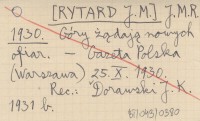 [RYTARD J.M.] J.M.R.
1930. Góry żądają nowych
ofiar. – Gazeta Polska
(Warszawa) 25.X.1930.
Rec.: Dorawski J.K.
1931 b.